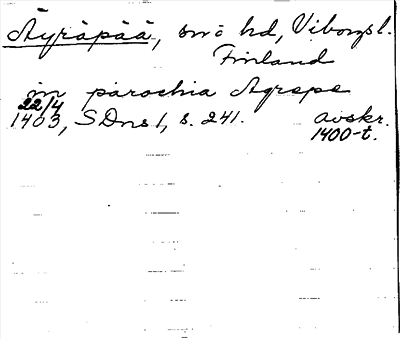 Äyräpää, snö hd, Viborgsl.
Finland
in parochia Agrepe
22/4
1403, SDns 1, s. 241. avskr.
1400-t.